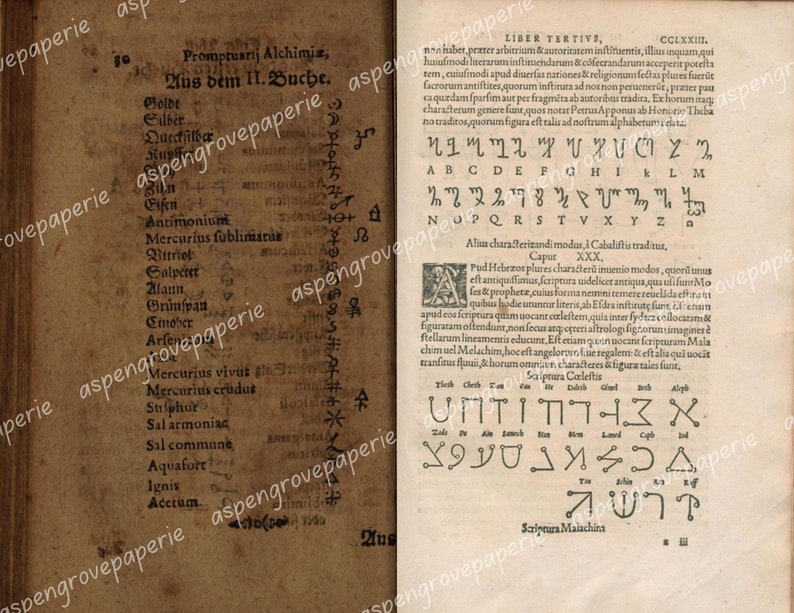 30
Promptuarij Alchimiæ,
Aus dem II. Buche.
Goldt
Silber
Quecksilber
Kupffer
Zihn
Eisen
Antimonium
Mercurius sublimatus
Vitriol
Salpeter
Alaun
Grünspan
Cinober
Arsenicum
Mercurius vivus
Mercurius crudus
Sulphur
Sal armoniac
Sal commune
Aquafort
Ignis
Acetum
Aus
LIBER TERTIVS, CCLXXIII.
non habet, præter arbitrium & autoritatem instituentis, illius inquam, qui
huiusmodi literarum instituendarum & cōsecrandarum acceperit potesta
tem, cuiusmodi apud diuersas nationes & religionum sectas plures fuerūt
sacrorum antistites, quorum instituta ad nos non peruenerūt, præter pau
ca quædam sparsim aut per fragmēta ab autoribus tradita. Ex horum itaq;
characterum genere sunt, quos notat Petrus Apponus ab Honorio Theba
no traditos, quorum figura est talis ad nostrum alphabetum relata.
A B C D E F G H I k L M
N O P Q R S T V X Y Z Ω
Alius characterizandi modus, à Cabalistis traditus.
Caput XXX.
APud Hebræos plures characterū inuenio modos, quorū unus
est antiquissimus, scriptura uidelicet antiqua, qua usi sunt Mo
ses & prophetæ, cuius forma nemini temere reuelāda est: nam
quibus hodie utuntur literis, ab Esdra institutę sunt. Est etiam
apud eos scriptura quam uocant cœlestem, quia inter sydera collocatam &
figuratam ostendunt, non secus atq; cęteri astrologi signorum imagines è
stellarum lineamentis educunt. Est etiam quam uocant scripturam Mala
chim uel Melachim, hoc est angelorum siue regalem: & est alia quā uocāt
transitus fluuij, & horum omnium characteres & figuræ tales sunt.
Scriptura Cœlestis
Theth Cheth Zain Vau He Daleth Gimel Beth Aleph
Zade Pe Ain Samech Nun Mem Lamed Caph Iod
Tau Schin Res Kuff
Scriptura Malachim
z iii
aspengrovepaperie
aspengrovepaperie
aspengrovepaperie
aspengrovepaperie
aspengrovepaperie
aspengrovepaperie
aspengrovepaperie
aspengrovepaperie
aspengrovepaperie